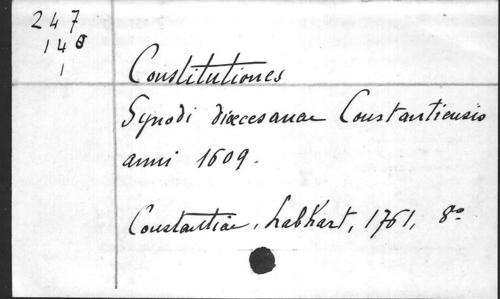 247
148
1
Constitutiones
Synodi dioecesanae Constantiensis
anni 1609.
Constantiae, Labhart, 1761, 8°